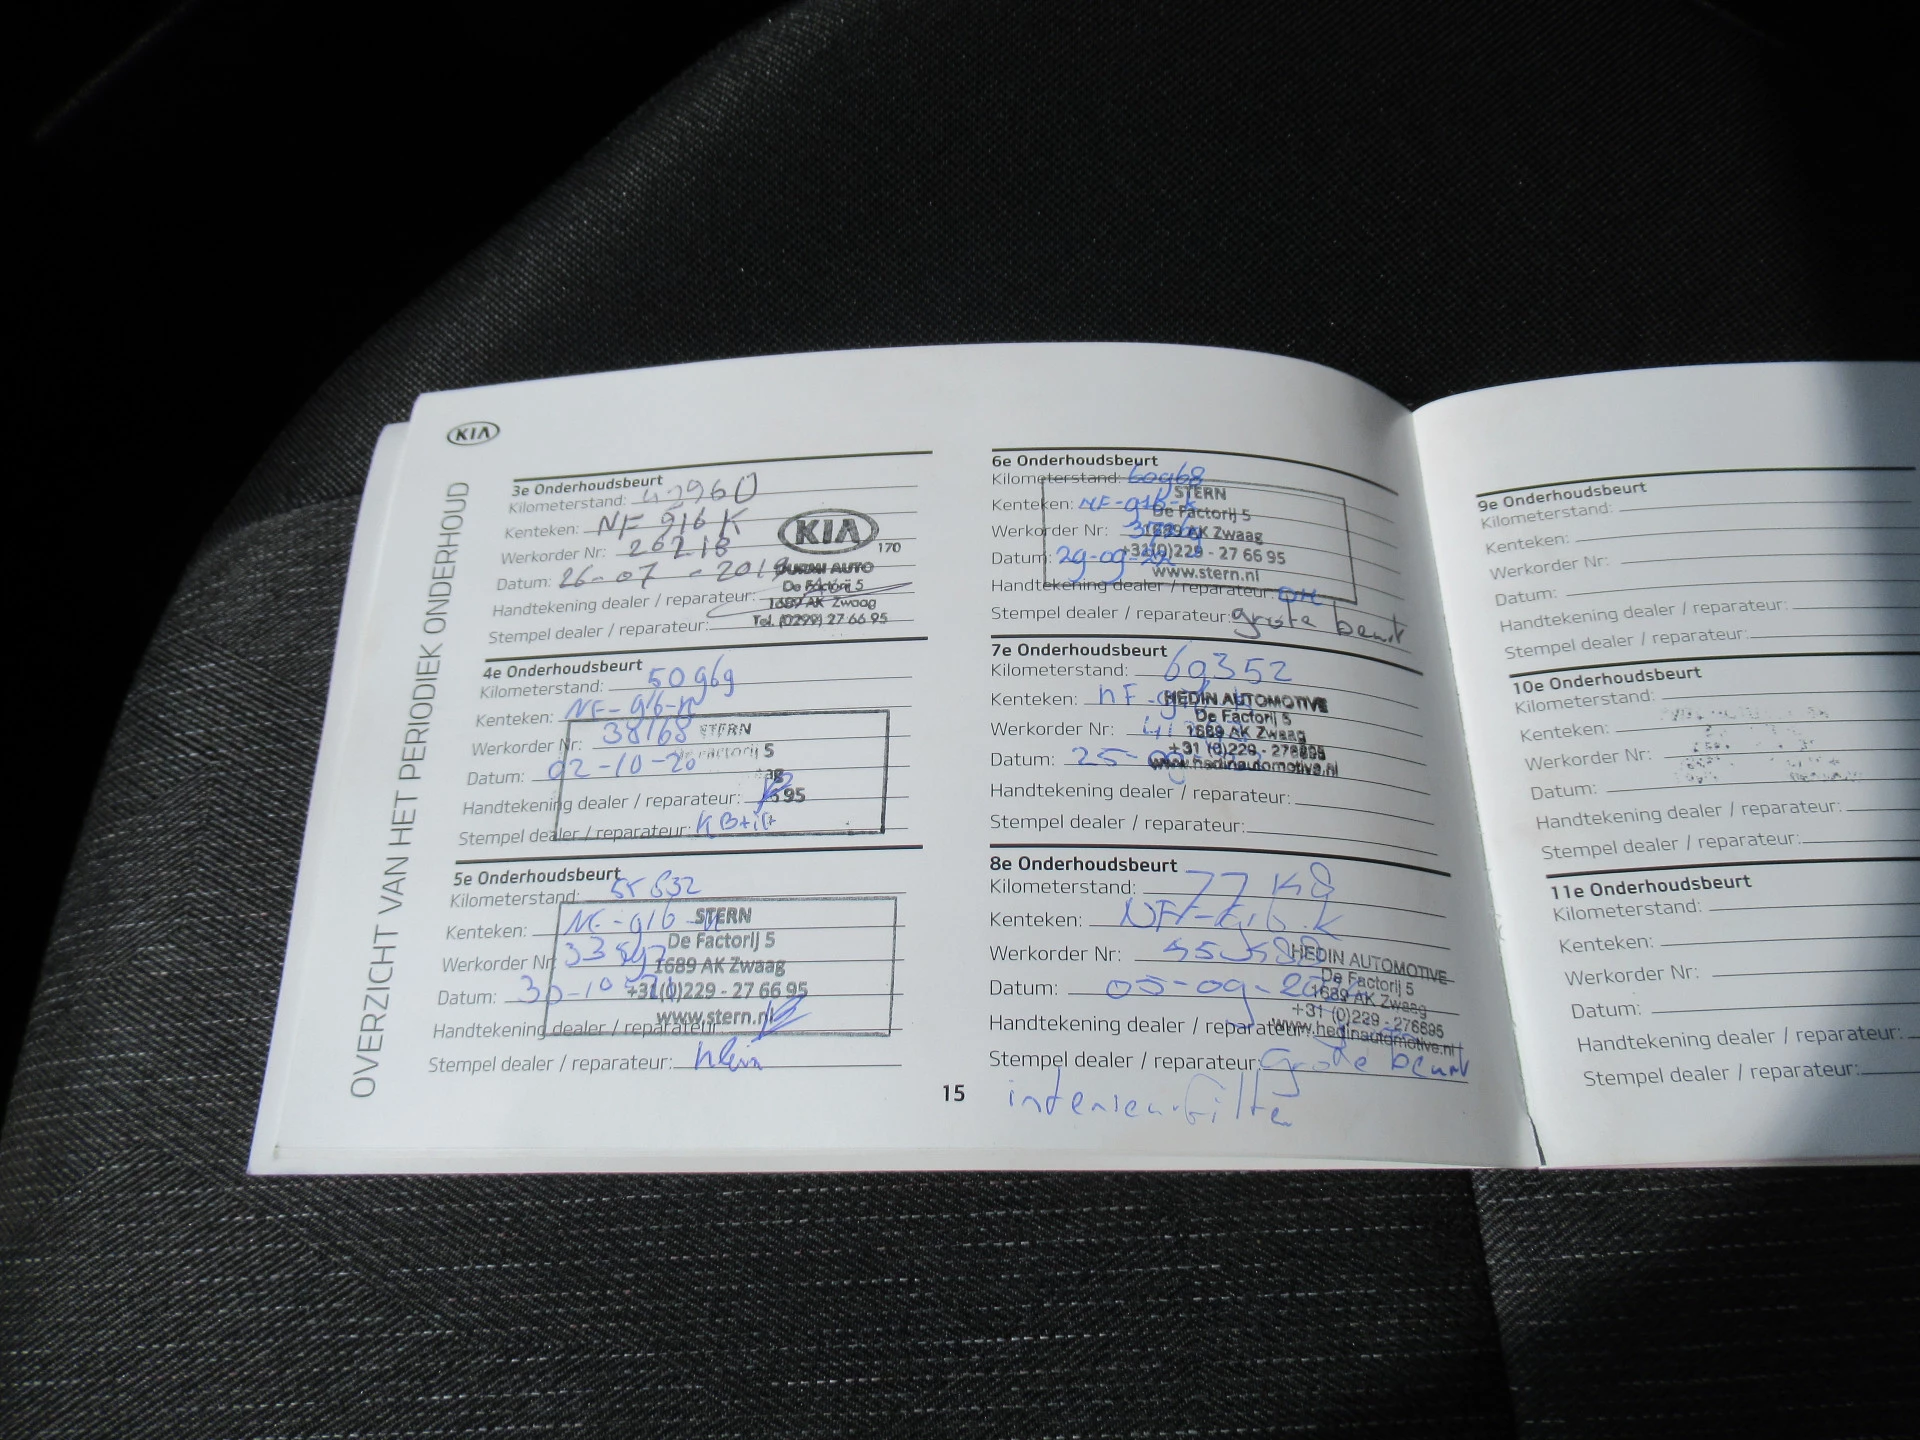 KIA
OVERZICHT VAN HET PERIODIEK ONDERHOUD
3e Onderhoudsbeurt
Kilometerstand:
Kenteken: NF 916 K
Werkorder Nr: 26218
Datum: 26-07-2019
Handtekening dealer / reparateur:
Stempel dealer / reparateur:
KIA
170
AUTO
De Factorij 5
1689 AK Zwaag
Tel. (0299) 27 66 95
4e Onderhoudsbeurt
Kilometerstand: 50969
Kenteken: NF-916-K
Werkorder Nr: 38168
Datum: 02-10-20
Handtekening dealer / reparateur:
Stempel dealer / reparateur:
STERN
De Factorij 5
95
5e Onderhoudsbeurt
Kilometerstand: 55832
Kenteken: NF-916-K
Werkorder Nr: 33597
Datum:
Handtekening dealer / reparateur:
Stempel dealer / reparateur: klein
STERN
De Factorij 5
1689 AK Zwaag
+31(0)229 - 27 66 95
www.stern.nl
15
6e Onderhoudsbeurt
Kilometerstand: 60968
Kenteken: NF-916-K
Werkorder Nr:
Datum: 29-09-22
Handtekening dealer / reparateur:
Stempel dealer / reparateur: grote beurt
STERN
De Factorij 5
1689 AK Zwaag
+31(0)229 - 27 66 95
www.stern.nl
7e Onderhoudsbeurt
Kilometerstand: 69352
Kenteken: NF-
Werkorder Nr:
Datum: 25-09
Handtekening dealer / reparateur:
Stempel dealer / reparateur:
HEDIN AUTOMOTIVE
De Factorij 5
1689 AK Zwaag
+31 (0)229 - 276695
www.hedinautomotive.nl
8e Onderhoudsbeurt
Kilometerstand:
Kenteken: NF-916-K
Werkorder Nr:
Datum: 05-09-
Handtekening dealer / reparateur:
Stempel dealer / reparateur: Grote beurt
interieurfilter
HEDIN AUTOMOTIVE
De Factorij 5
1689 AK Zwaag
+31 (0)229 - 276695
www.hedinautomotive.nl
9e Onderhoudsbeurt
Kilometerstand:
Kenteken:
Werkorder Nr:
Datum:
Handtekening dealer / reparateur:
Stempel dealer / reparateur:
10e Onderhoudsbeurt
Kilometerstand:
Kenteken:
Werkorder Nr:
Datum:
Handtekening dealer / reparateur:
Stempel dealer / reparateur:
11e Onderhoudsbeurt
Kilometerstand:
Kenteken:
Werkorder Nr:
Datum:
Handtekening dealer / reparateur:
Stempel dealer / reparateur: